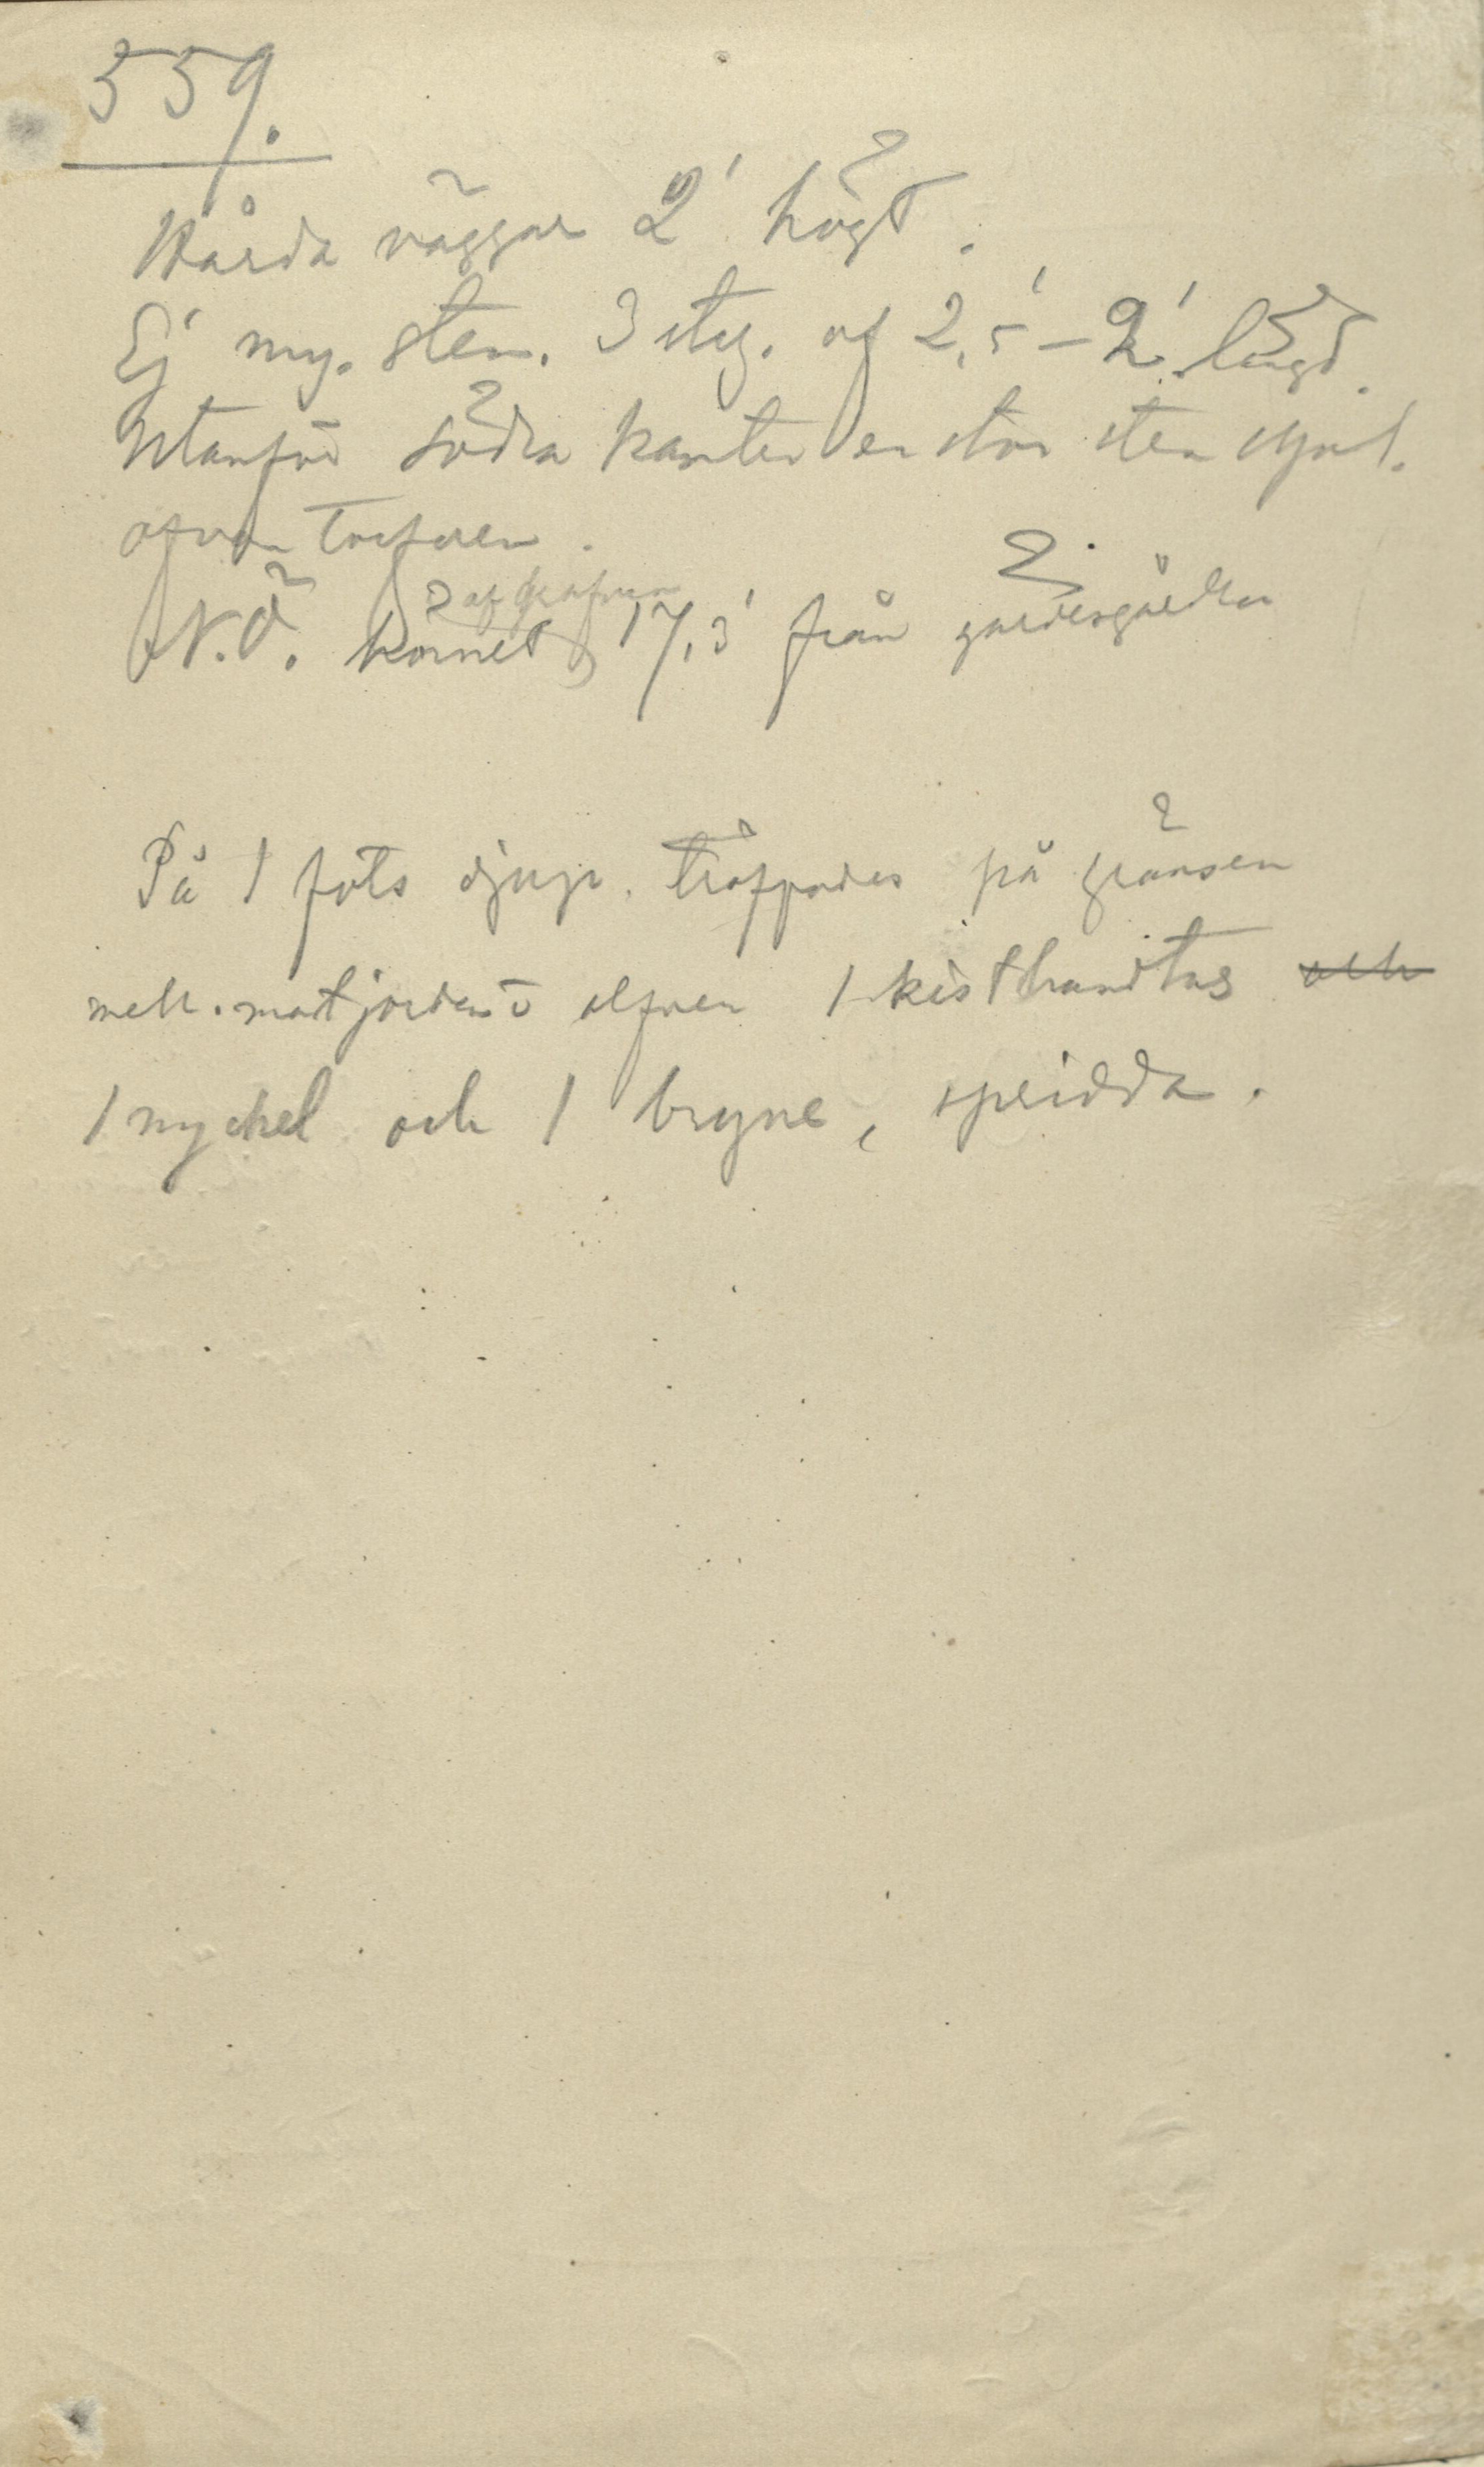 559.
Hårda väggar 2' högt.
Ej my. sten. 3 styc. af 2,5'-2' längd.
Utanför södra kanten en stor sten
ofvan torfven.
af grafven
N.Ö. hörnet 17,3' från gärdesgården
På 1 fots djup. träffades på gränsen
mell. matjorden o alfven 1 kisthandtag och
1 nyckel och 1 bryne, spridda.